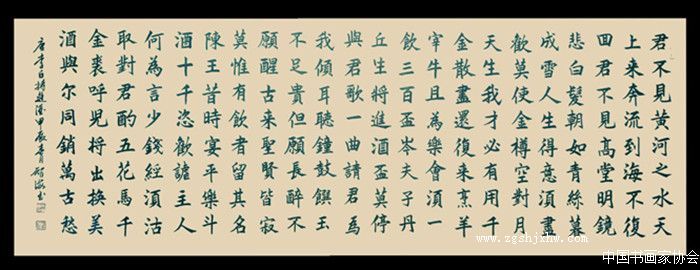 君不見黃河之水天
上来奔流到海不復
回君不見高堂明鏡
悲白髮朝如青絲暮
成雪人生得意須盡
歡莫使金樽空對月
天生我才必有用千
金散盡還復来烹羊
宰牛且為樂會須一
飲三百盃岑夫子丹
丘生將進酒盃莫停
與君歌一曲請君爲
我傾耳聽鐘鼓饌玉
不足貴但願長醉不
願醒古来聖賢皆寂
莫惟有飲者留其名
陳王昔時宴平樂斗
酒十千恣歡謔主人
何為言少錢經須沽
取對君酌五花馬千
金裘呼兒將出換美
酒與尔同銷萬古愁
唐李白將進酒甲辰書
www.zgshjxhw.com
中国书画家协会